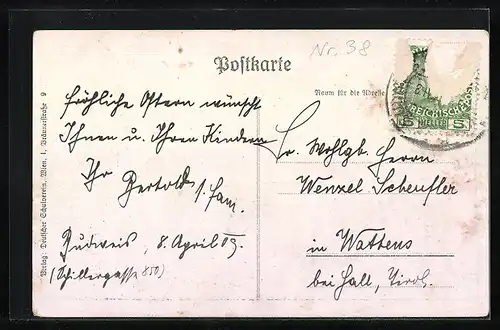 Nr. 38
Postkarte
Raum für die Adresse
Fröhliche Ostern wünscht
Ihnen u. Ihren Kindern
Ihr Bertold s. Fam.
Budweis, 8. April 09.
(Schillergasse 850)
Sr. Wohlgb. Herrn
Wenzel Scheufler
in Wattens
bei Hall, Tirol.
5
Verlag: Deutscher Schulverein, Wien, I., Bräunerstraße 9